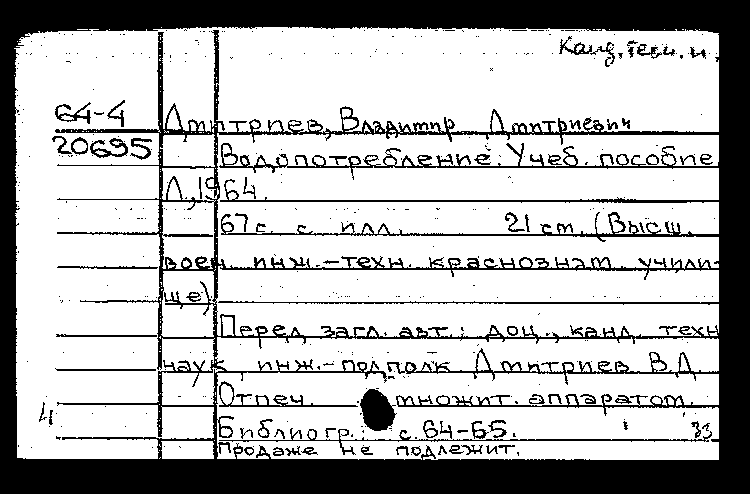 Канд. техн. н.
64-4
Дмитриев, Владимир Дмитриевич
20695
Водопотребление. Учеб. пособие
Л., 1964.
67 с. с илл. 21 см. (Высш.
воен. инж.-техн. краснознам. учили-
ще)
Перед загл. авт.: доц., канд. техн
наук, инж.-подполк Дмитриев В.Д.
Отпеч. множит. аппаратом.
Библиогр.: с. 64-65.
33
Продаже не подлежит.
4